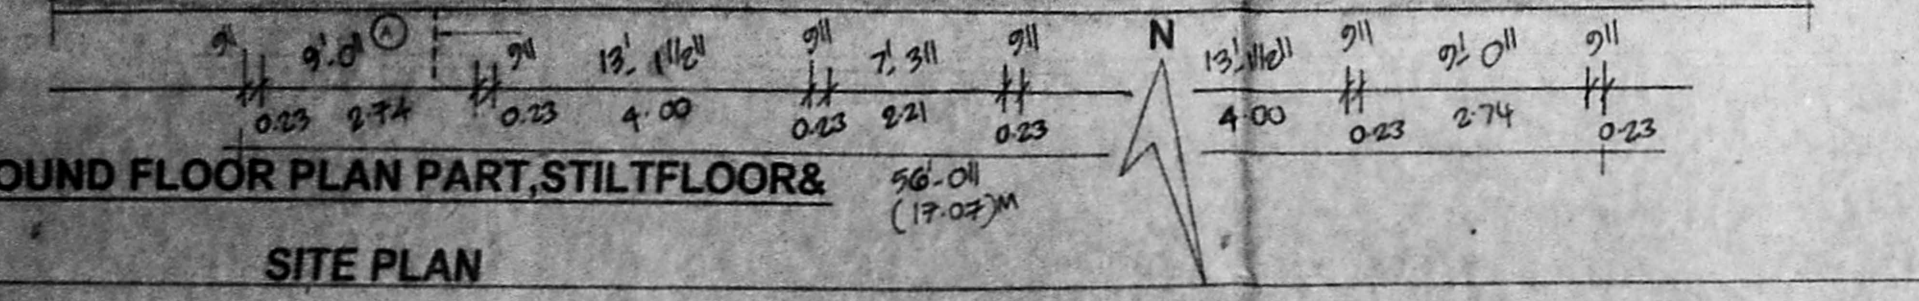 9" 9'-0" A 9" 13'-1 1/2" 9" 7'-3" 9" N 13'-1 1/2" 9" 9'-0" 9"
0.23 2.74 0.23 4.00 0.23 2.21 0.23 4.00 0.23 2.74 0.23
OUND FLOOR PLAN PART,STILTFLOOR&
56'-0"
(17.07)M
SITE PLAN